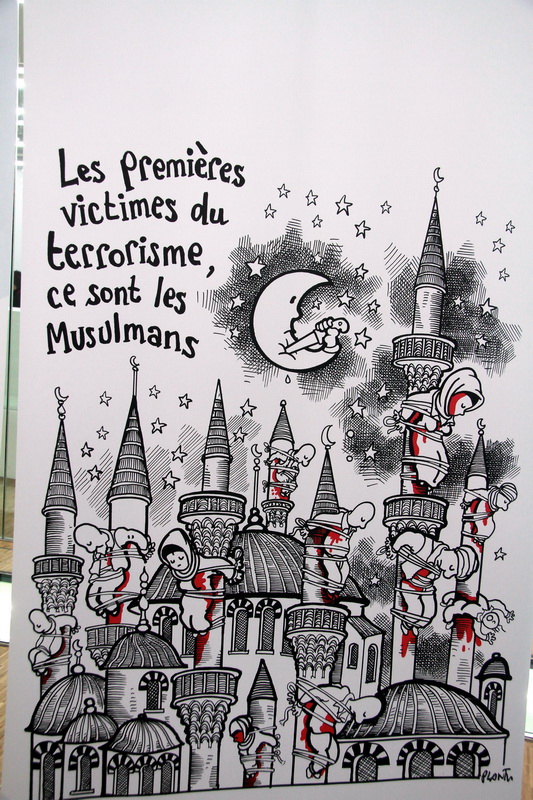 Les premières
victimes du
terrorisme,
ce sont les
Musulmans
PLANTU